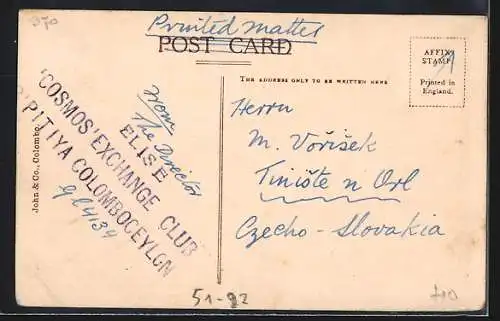 370
Printed matter
POST CARD
AFFIX
STAMP
Printed in
England.
THE ADDRESS ONLY TO BE WRITTEN HERE
John & Co., Colombo.
From
The Director
ELISE
'COSMOS' EXCHANGE CLUB
PITIYA COLOMBOCEYLON
Herrn
M. Voříšek
Tiniště n Orl
Czecho-Slovakia
51-92